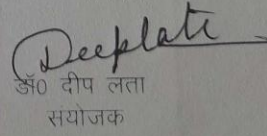 Deeplata
डॉ0 दीप लता
संयोजक